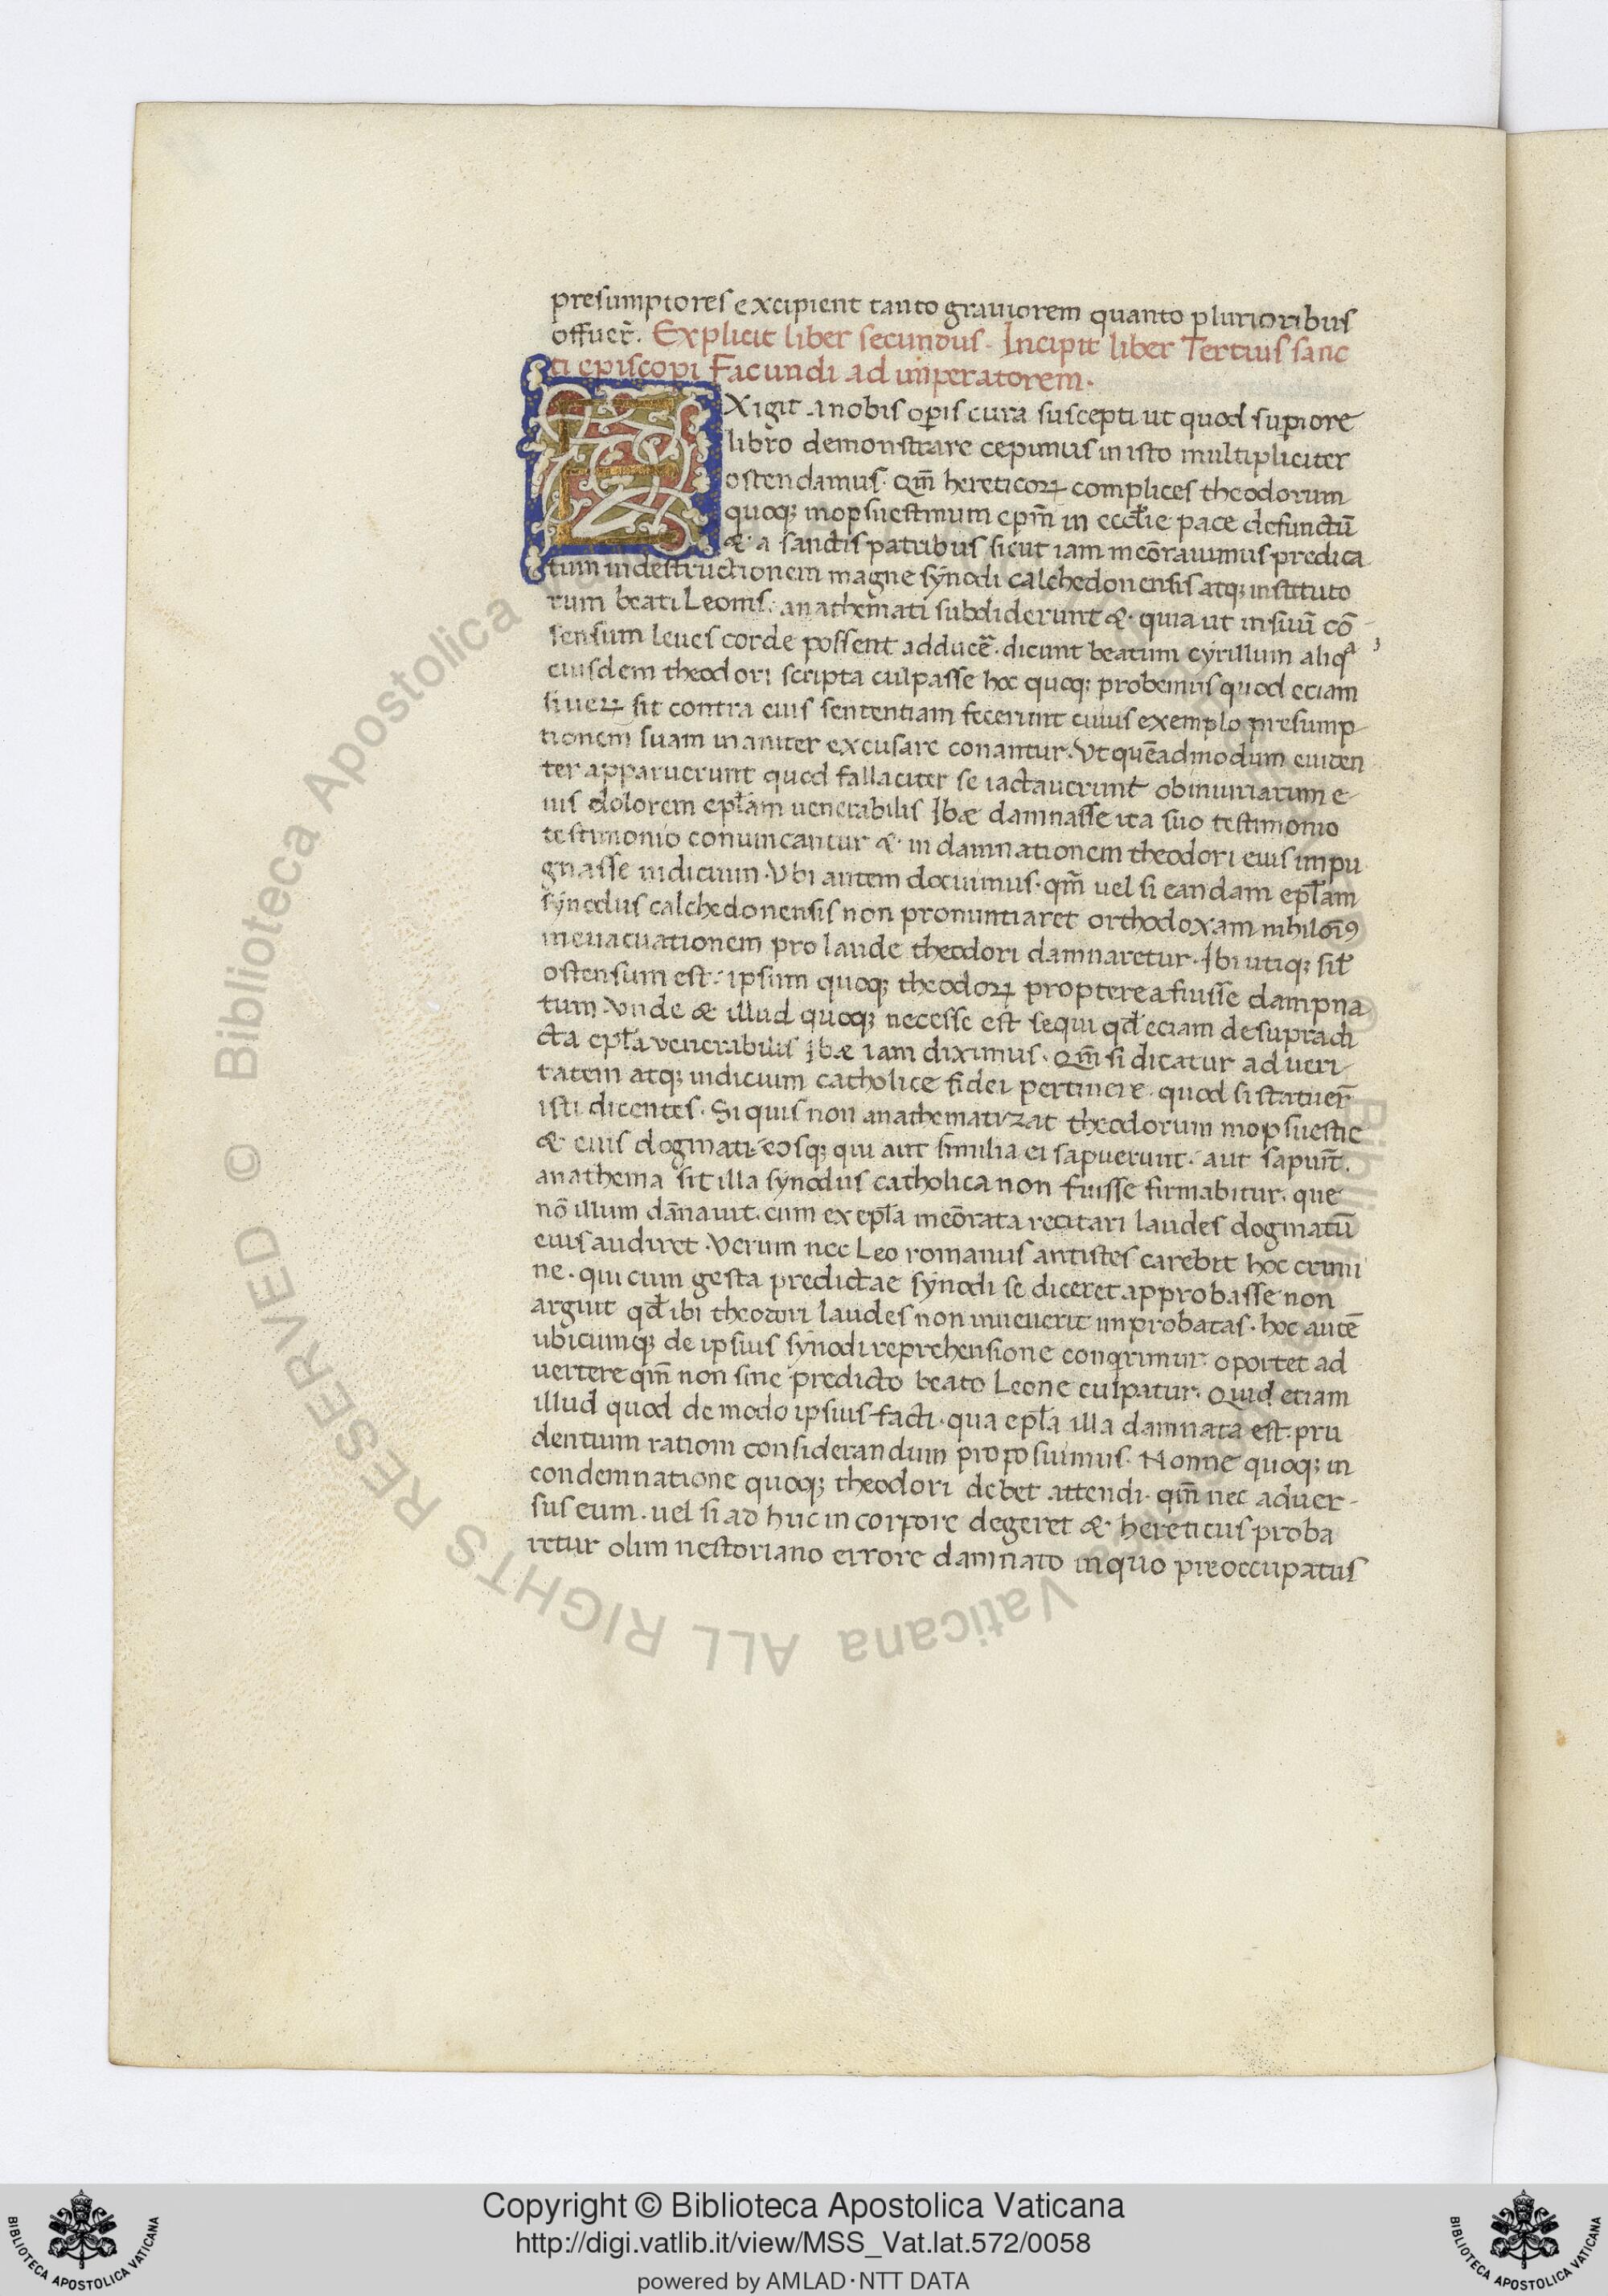 presumptores excipient tanto grauiorem quanto plurioribus
offuer̄. Explicit liber secundus. Incipit liber Tertius sanc
ti episcopi Facundi ad imperatorem.
EXigit a nobis oꝑis cura suscepti ut quod suꝑiore
libro demonstrare cepimus in isto multipliciter
ostendamus. Qm̄ hereticoꝝ complices theodorum
quoqꝫ mopsuestinum epm̄ in eccl̄ie pace defunctū
& a sanctis patribus sicut iam meōrauimus predica
tum in destructionem magne synodi calchedonensis atqꝫ instituto
rum beati Leonis. anathemati subdiderunt & quia ut in suū cō
sensum leues corde possent adducer̄. dicunt beatum cyrillum aliqͣ
eiusdem theodori scripta culpasse hoc quoqꝫ probemus quod eciam
si ueꝝ sit contra eius sententiam fecerunt cuius exemplo presump
tionem suam inaniter excusare conantur. Vt quēadmodum euiden
ter apparuerunt quod fallaciter se iactauerunt ob iniuriarum e
ius dolorem epl̄am uenerabilis Ibæ damnasse ita suo testimonio
testimonio conuincantur & in damnationem theodori eius impu
gnasse iudicium. Vbi autem docuimus. qm̄ uel si eandam epl̄am
synodus calchedonensis non pronuntiaret orthodoxam nihilōiꝯ
in euacuationem pro laude theodori damnaretur. Ibi utiqꝫ sil̄
ostensum est. ipsum quoqꝫ theodoꝝ propterea fuisse dampna
tum Vnde & illud quoqꝫ necesse est sequi qd̄ eciam de supradi
cta epl̄a uenerabilis Ibæ iam diximus. Qm̄ si dicatur ad ueri
tatem atqꝫ iudicium catholice fidei pertinere quod si statuer̄
isti dicentes. Si quis non anathematizat theodorum mopsuestie
& eius dogmati eosqꝫ qui aut similia ei sapuerunt. aut sapiūt.
anathema sit illa synodus catholica non fuisse firmabitur. que
nō illum dānauit. cum ex epl̄a meōrata recitari laudes dogmatū
eius audiret. Verum nec Leo romanus antistes carebit hoc crimi
ne. qui cum gesta predictae synodi se diceret approbasse non
arguit qd̄ ibi theodori laudes non inuenerit improbatas. hoc autē
ubicumqꝫ de ipsius synodi reprehensione conqrimur oportet ad
uertere qm̄ non sine predicto beato Leone culpatur. Quid etiam
illud quod de modo ipsius facti. qua epl̄a illa damnata est. pru
dentium rationi considerandum proposuimus. Nonne quoqꝫ in
condemnatione quoqꝫ theodori debet attendi. qm̄ nec aduer-
sus eum. uel si ad huc in corpore degeret & hereticus proba
retur olim nestoriano errore damnato in quo preoccupatus
© Biblioteca Apostolica Vaticana ALL RIGHTS RESERVED
BIBLIOTECA APOSTOLICA VATICANA
Copyright © Biblioteca Apostolica Vaticana
http://digi.vatlib.it/view/MSS_Vat.lat.572/0058
powered by AMLAD·NTT DATA
BIBLIOTECA APOSTOLICA VATICANA